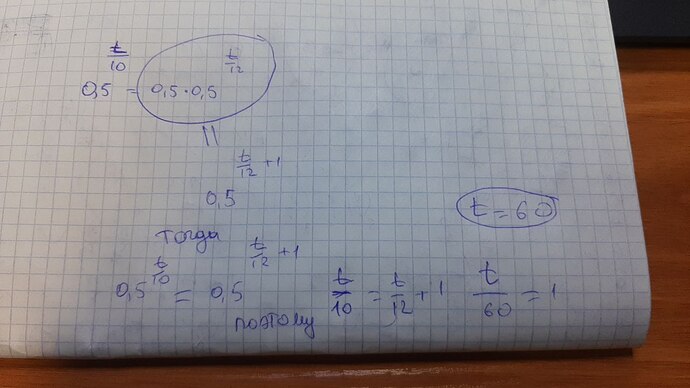 0,5^(t/10) = 0,5 · 0,5^(t/12)
||
0,5^(t/12 + 1)
t = 60
тогда
0,5^(t/10) = 0,5^(t/12 + 1)
поэтому
t/10 = t/12 + 1
t/60 = 1